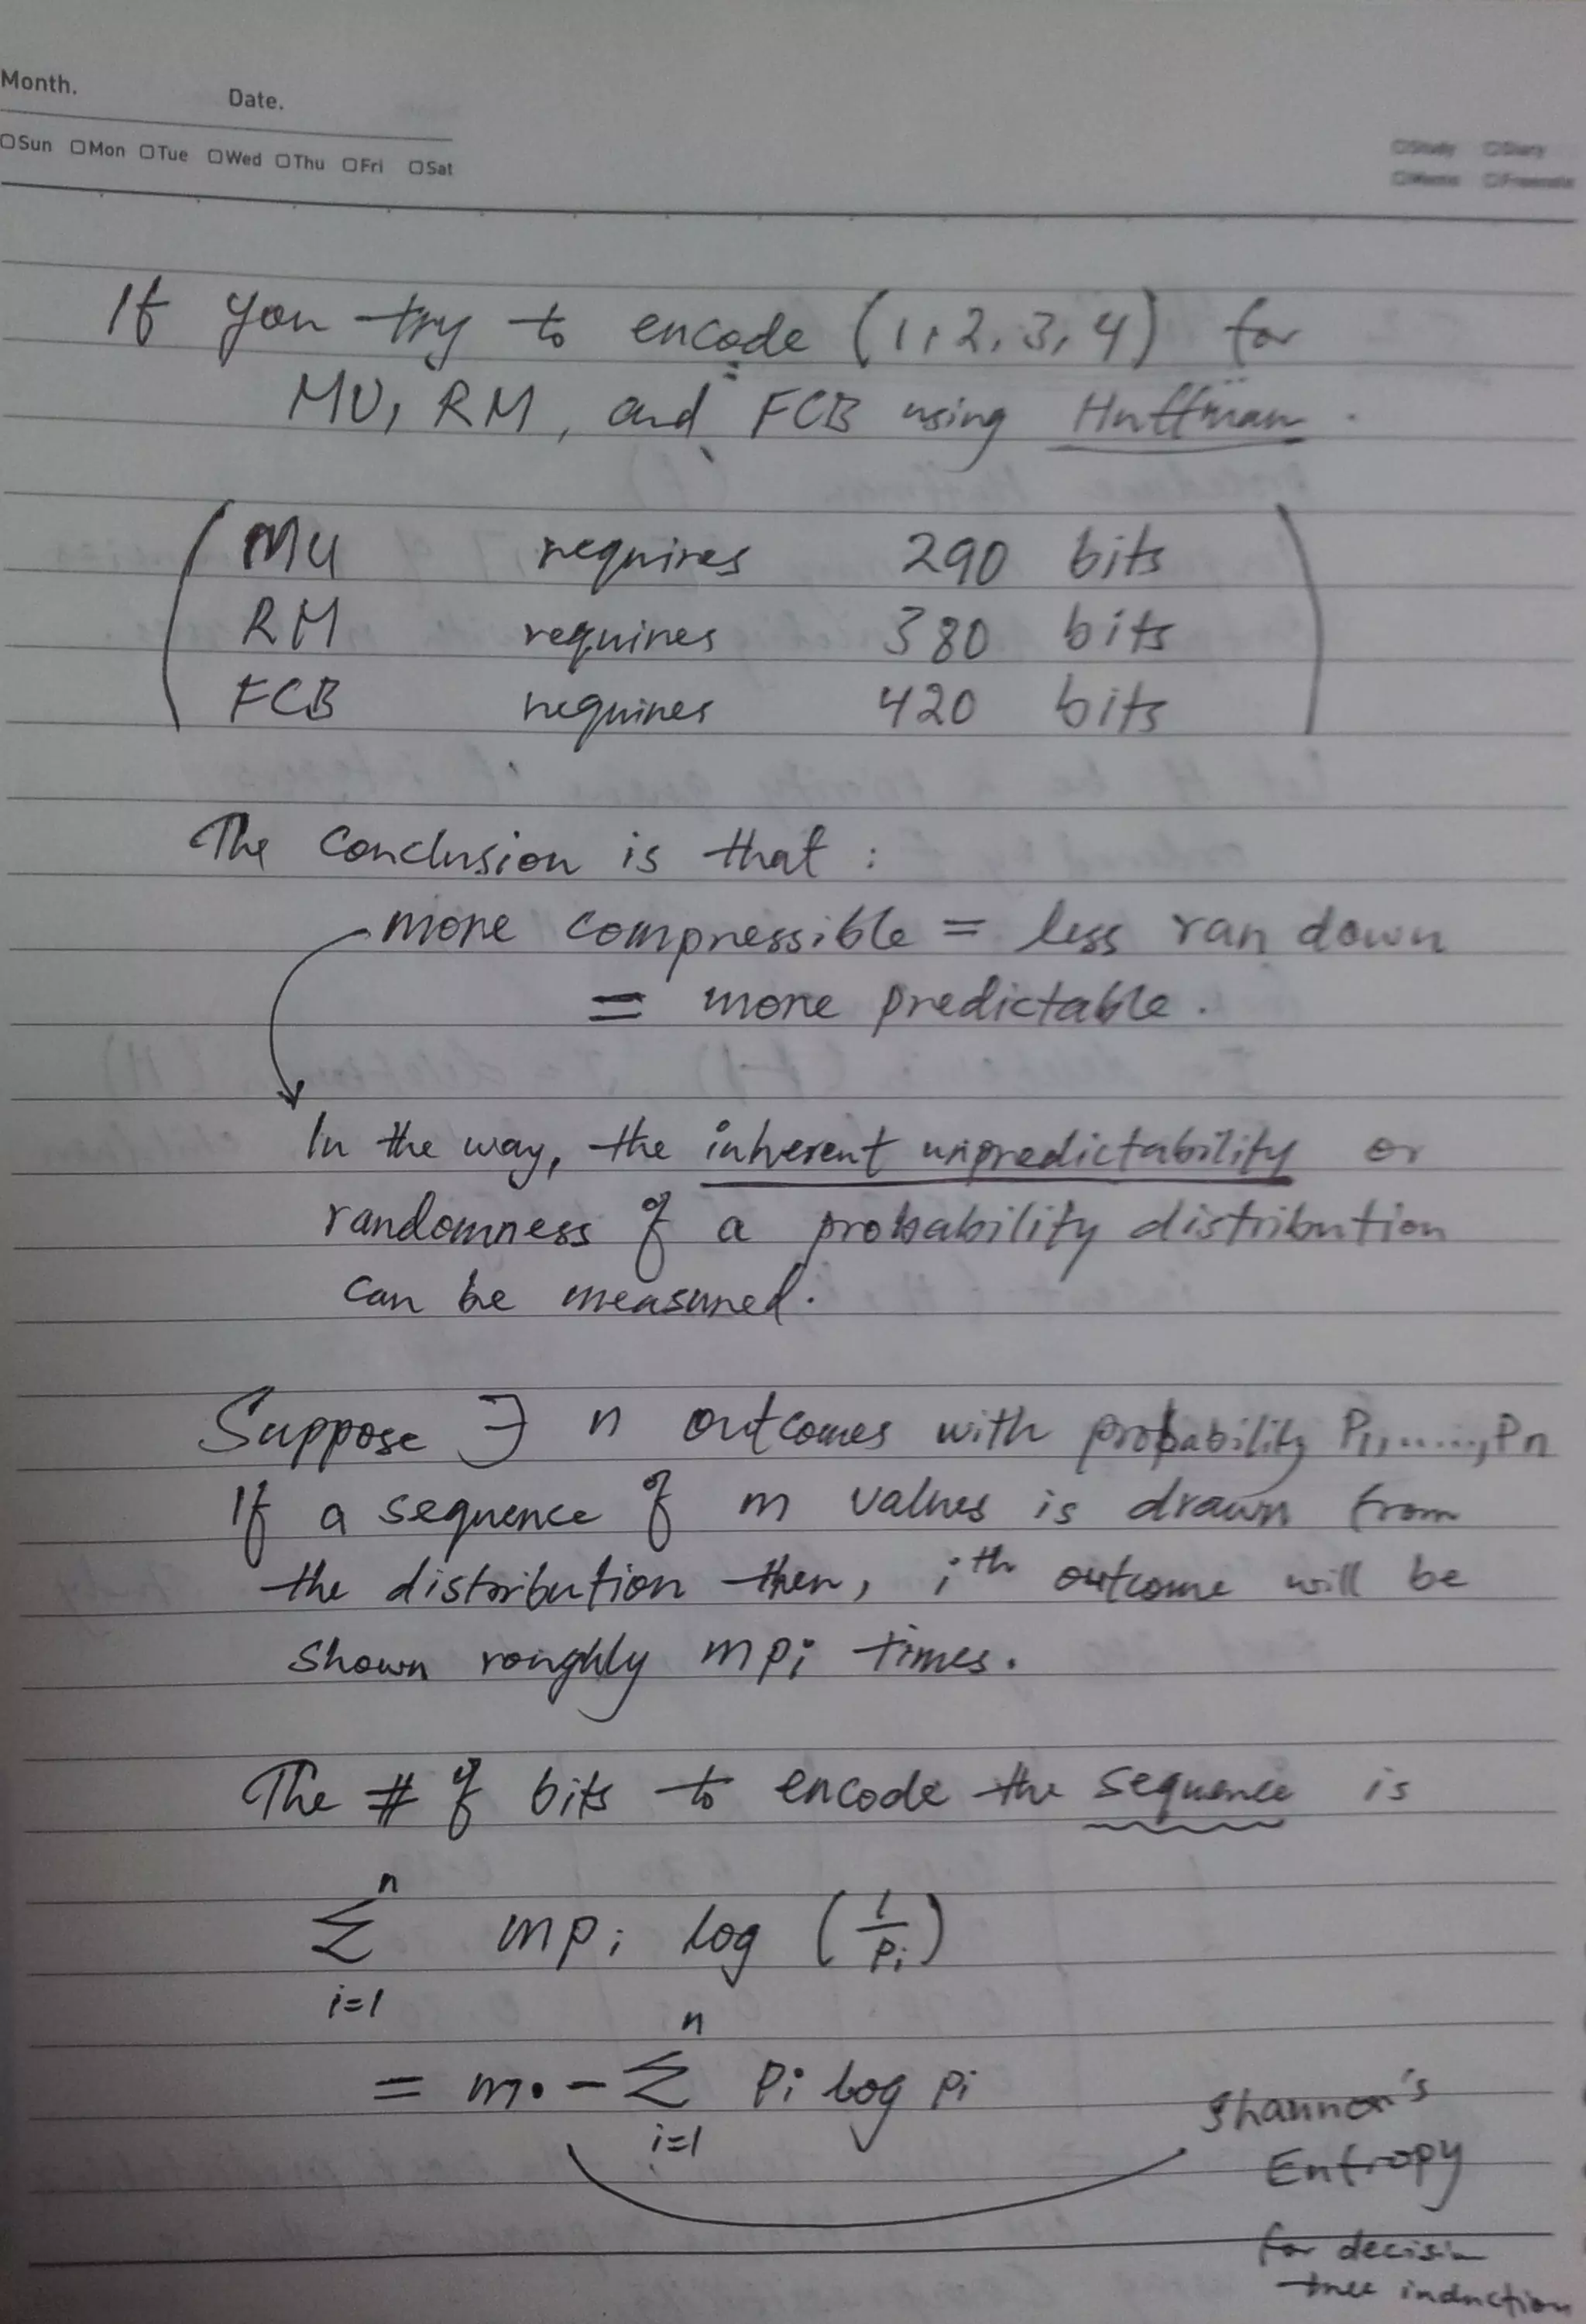 Month.
Date.
Sun Mon Tue Wed Thu Fri Sat
If you try to encode (1, 2, 3, 4) for
MU, RM, and FCB using Huffman.
MU requires 290 bits
RM requires 380 bits
FCB requires 420 bits
The conclusion is that :
more compressible = less ran down
= more predictable.
In the way, the inherent unpredictability or
randomness of a probability distribution
can be measured.
Suppose ∃ n outcomes with probability P1, ....., Pn
If a sequence of m values is drawn from
the distribution then, ith outcome will be
shown roughly mpi times.
The # of bits to encode the sequence is
n
∑ mpi log (1/pi)
i=1
n
= m· - ∑ Pi log pi
i=1
Shannon's
Entropy
for decision
tree induction